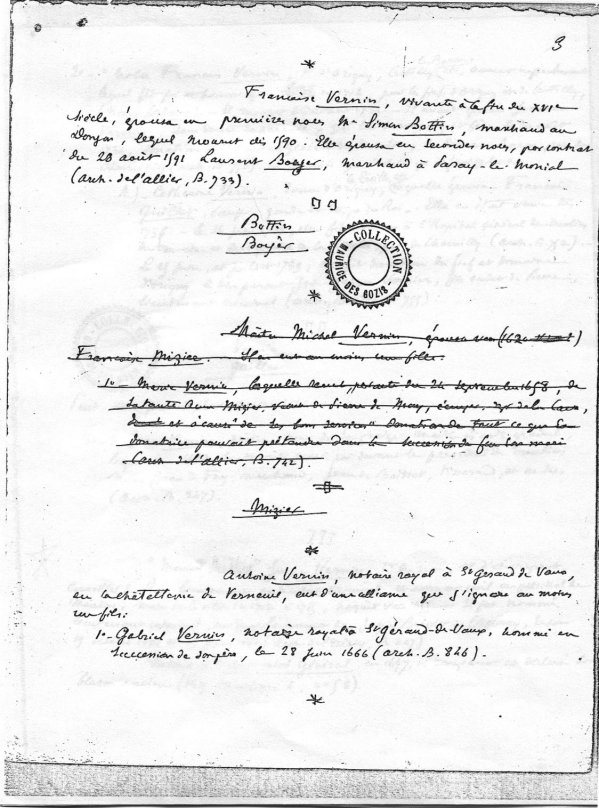 3
*
Françoise Vernin, vivante à la fin du XVIe
siècle, épousa en premières noces Me Simon Bottin, marchand au
Donjon, lequel mourut dès 1590. Elle épousa en secondes noces, par contrat
du 28 août 1591 Laurent Boyer, marchand à Paray-le-Monial
(arch. de l'allier, B. 733).
Bottin
Boyer
COLLECTION
MAURICE DES GOZIS
*
Maître Michel Vernin, épousa vers (1620
Françoise Mizier. Il en eut au moins une fille.
1o- Marie Vernin, laquelle reçut, par acte du 24 septembre 1658, de
sa tante Mizier, veuve de
et à cause de "les bons services" donation de tout ce que la
donatrice pouvait prétendre dans la succession de feu son mari
(arch. de l'allier, B. 742).
Mizier
*
Antoine Vernin, notaire royal à St Gerand de Vaux,
en la châtellenie de Verneuil, eut d'une alliance que j'ignore au moins
un fils:
1o- Gabriel Vernin, notaire royal à St Gérand-de-Vaux, nommé en
succession de son père, le 28 juin 1666 (arch. B. 826).
*